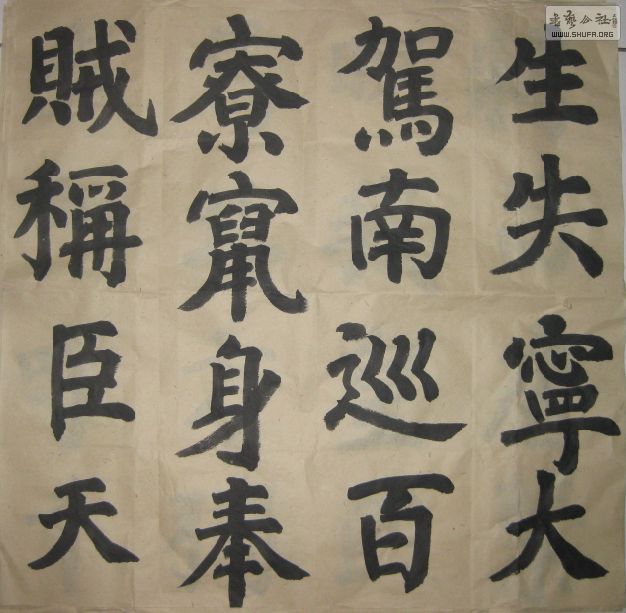 生失寧大
駕南巡百
寮竄身奉
賊稱臣天
書藝公社
WWW.SHUFA.ORG